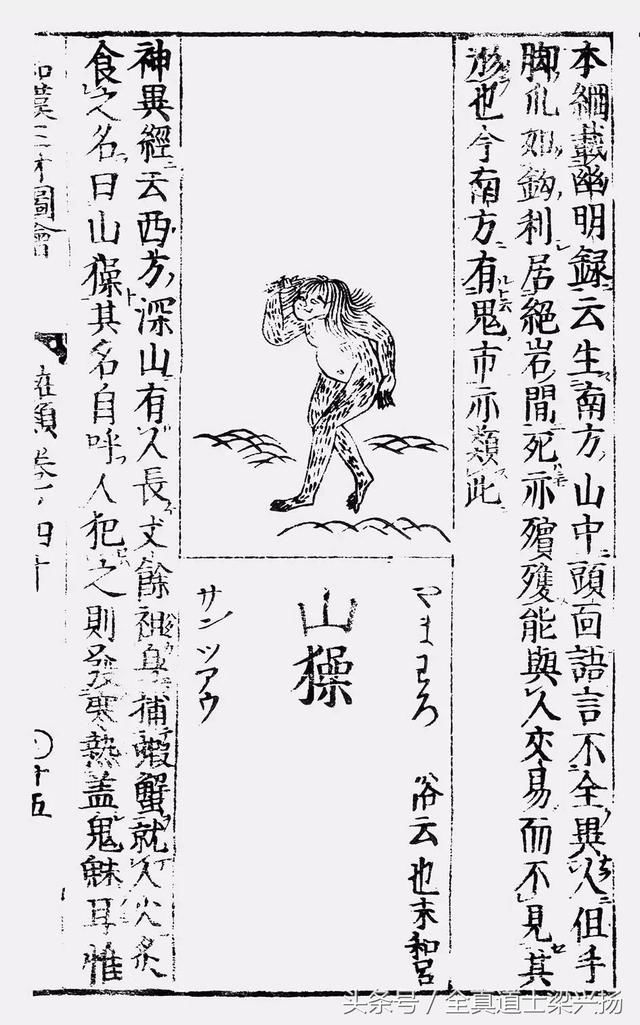 本綱載幽明錄云生南方山中頭面語言不全異人但手
脚爪如鉤利居絕岩間死亦殯殮能與人交易而不見其
形也今南方有鬼市亦類此
やまわろ 俗云也末和呂
山𤢖
サンツアウ
神異經云西方深山有人長丈餘袒身捕蝦蟹就人火炙
食之名曰山𤢖其名自呼人犯之則發寒熱蓋鬼魅耳惟
和漢三才圖會
寓類卷ノ四十
〇十五
头条号/全真道士梁兴扬